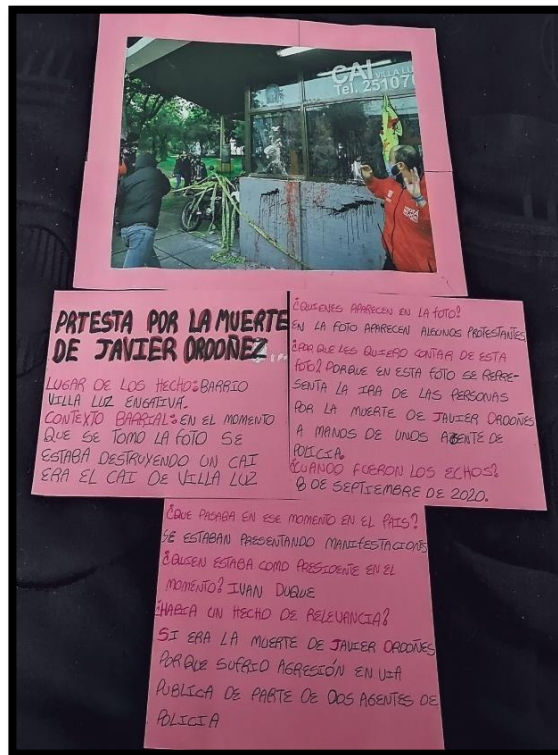 CAI VILLA LU
Tel. 251070
PRTESTA POR LA MUERTE
DE JAVIER ORDOÑEZ
LUGAR DE LOS HECHO: BARRIO
VILLA LUZ ENGATIVA.
CONTEXTO BARRIAL: EN EL MOMENTO
QUE SE TOMO LA FOTO SE
ESTABA DESTRUYENDO UN CAI
ERA EL CAI DE VILLA LUZ
¿QUIENES APARECEN EN LA FOTO?
EN LA FOTO APARECEN ALGUNOS PROTESTANTES
¿POR QUE LES QUIERO CONTAR DE ESTA
FOTO? PORQUE EN ESTA FOTO SE REPRE-
SENTA LA IRA DE LAS PERSONAS
POR LA MUERTE DE JAVIER ORDOÑES
A MANOS DE UNOS AGENTE DE
POLICIA.
¿CUANDO FUERON LOS ECHOS?
8 DE SEPTIEMBRE DE 2020.
¿QUE PASABA EN ESE MOMENTO EN EL PAIS?
SE ESTABAN PRESENTANDO MANIFESTACIONES
¿QUIEN ESTABA COMO PRESIDENTE EN EL
MOMENTO? IVAN DUQUE
¿HABIA UN HECHO DE RELEVANCIA?
SI ERA LA MUERTE DE JAVIER ORDOÑES
PORQUE SUFRIO AGRESIÓN EN VIA
PUBLICA DE PARTE DE DOS AGENTES DE
POLICIA